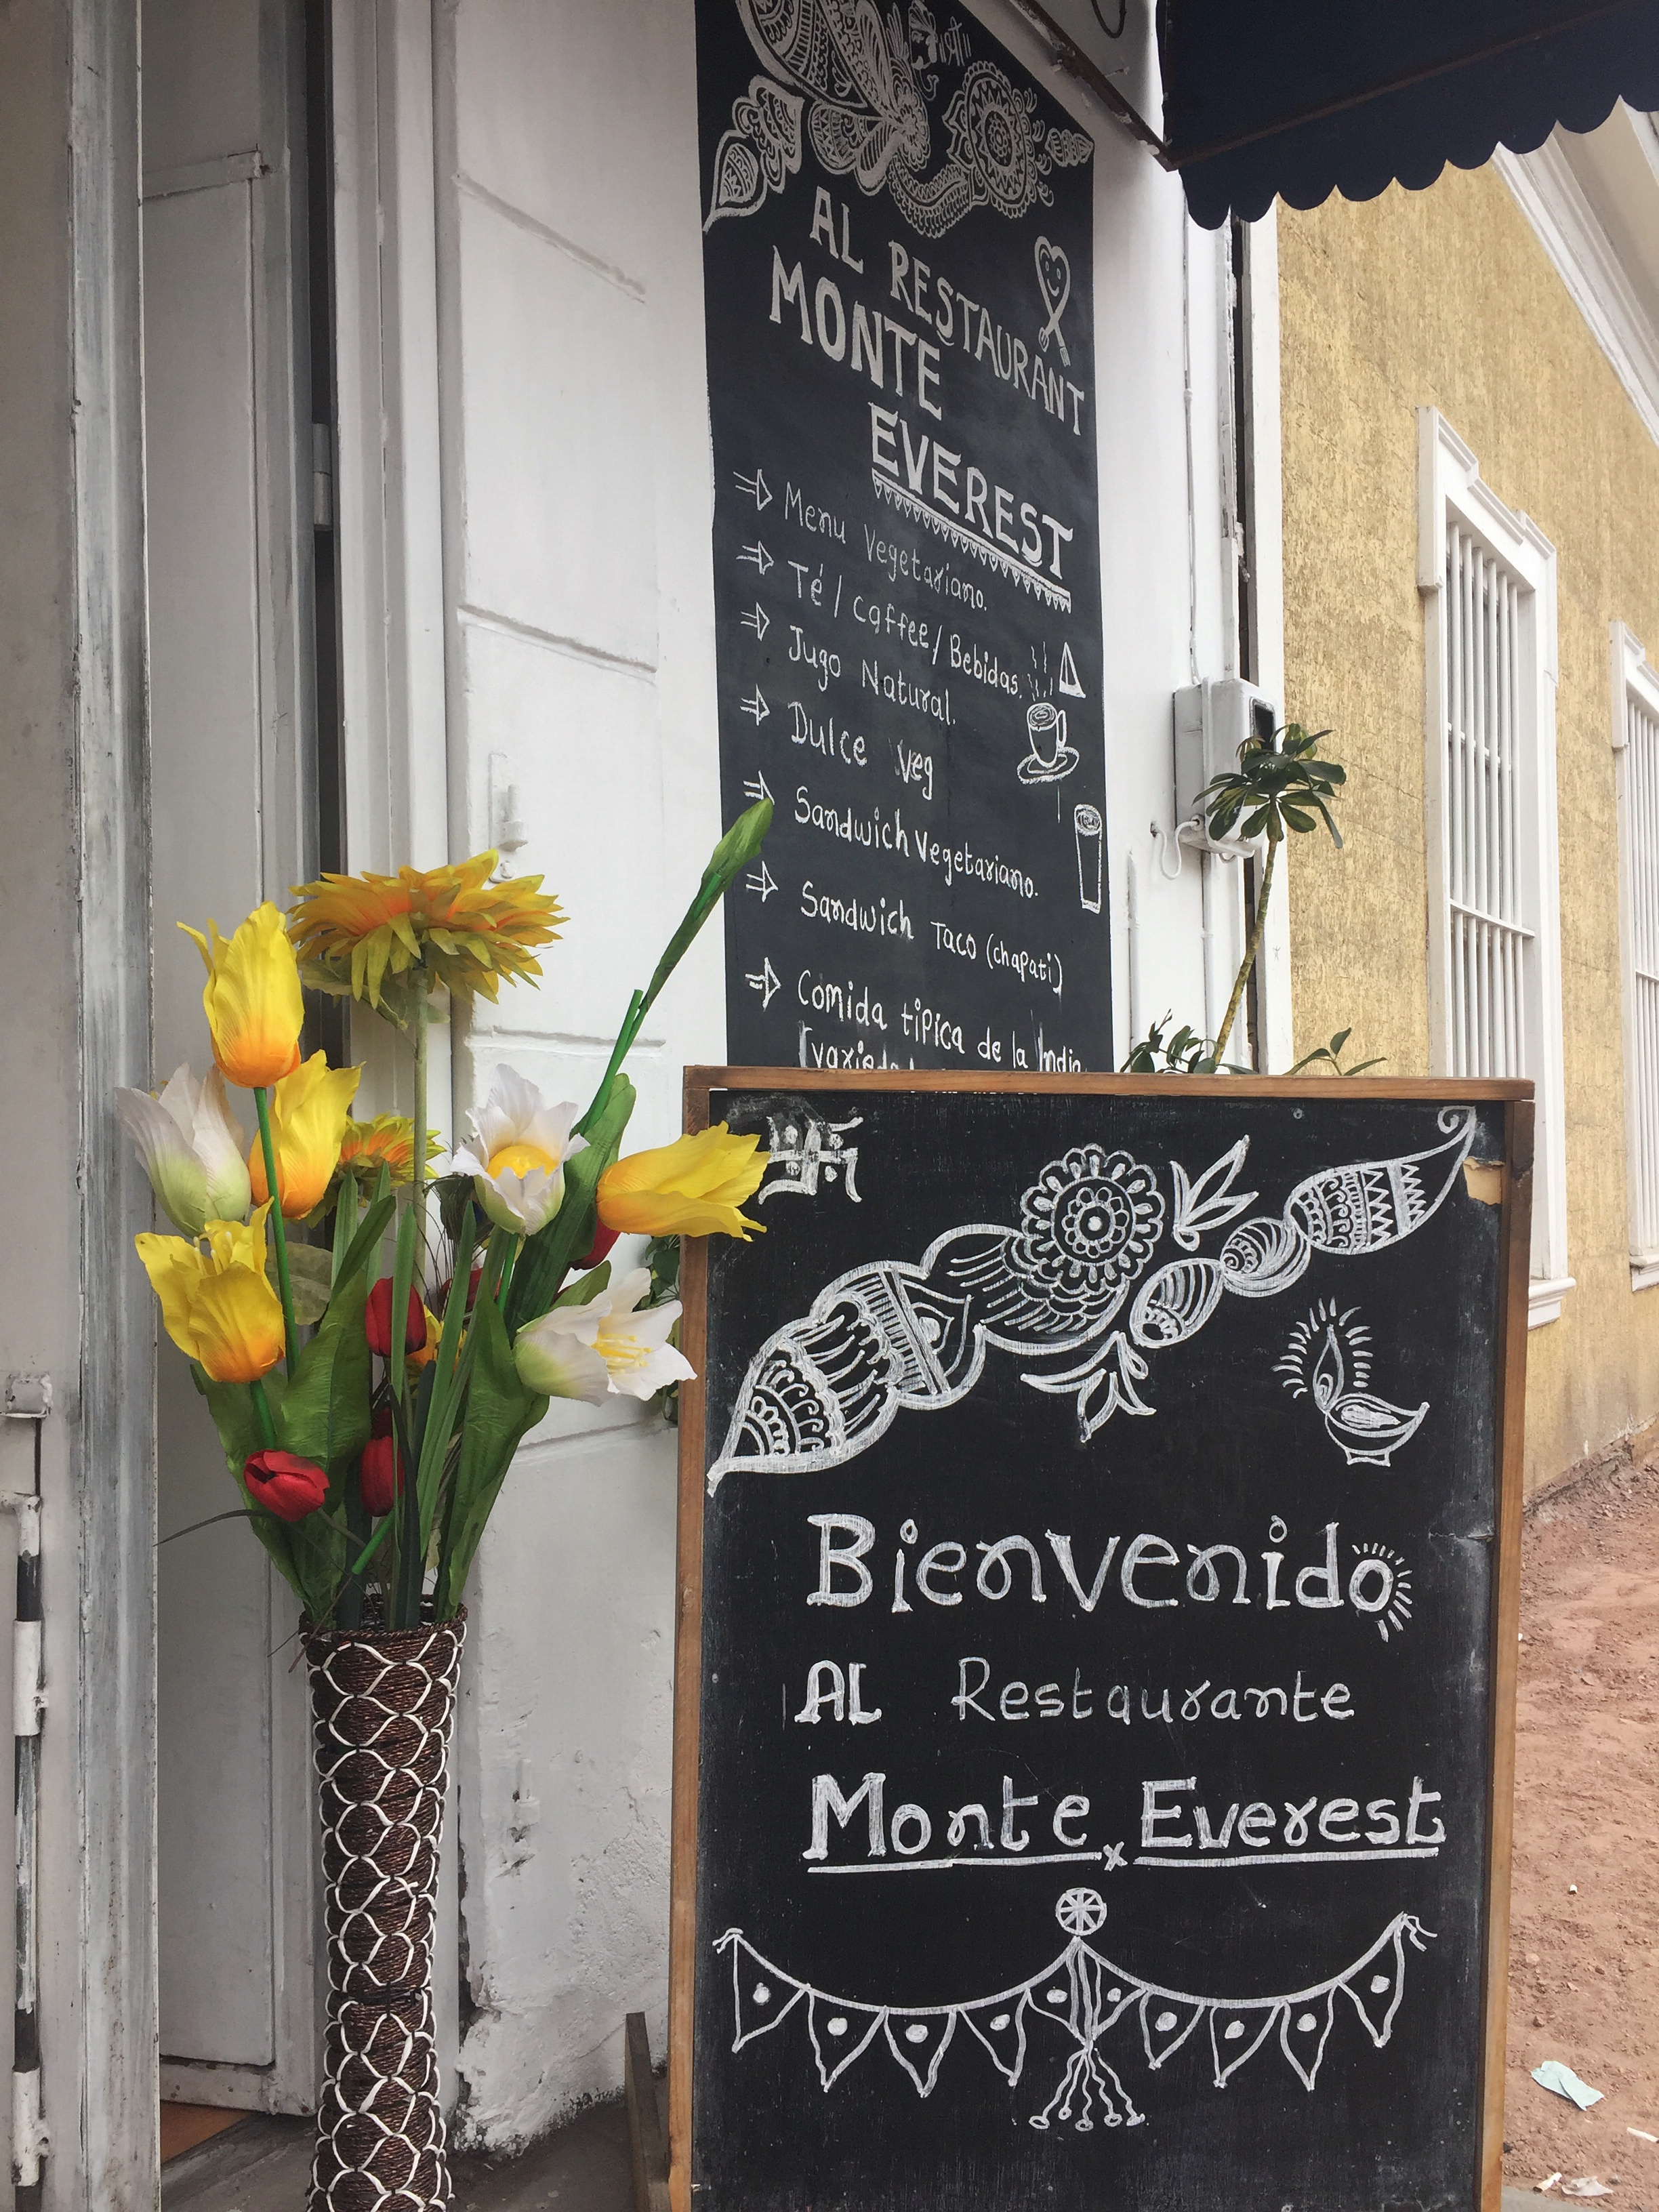 AL RESTAURANT
MONTE
EVEREST
Menu Vegetariano.
Té / Caffee / Bebidas.
Jugo Natural.
Dulce veg
Sandwich Vegetariano.
Sandwich Taco (chapati)
Comida tipica de la India
Bienvenido
AL Restaurante
Monte Everest